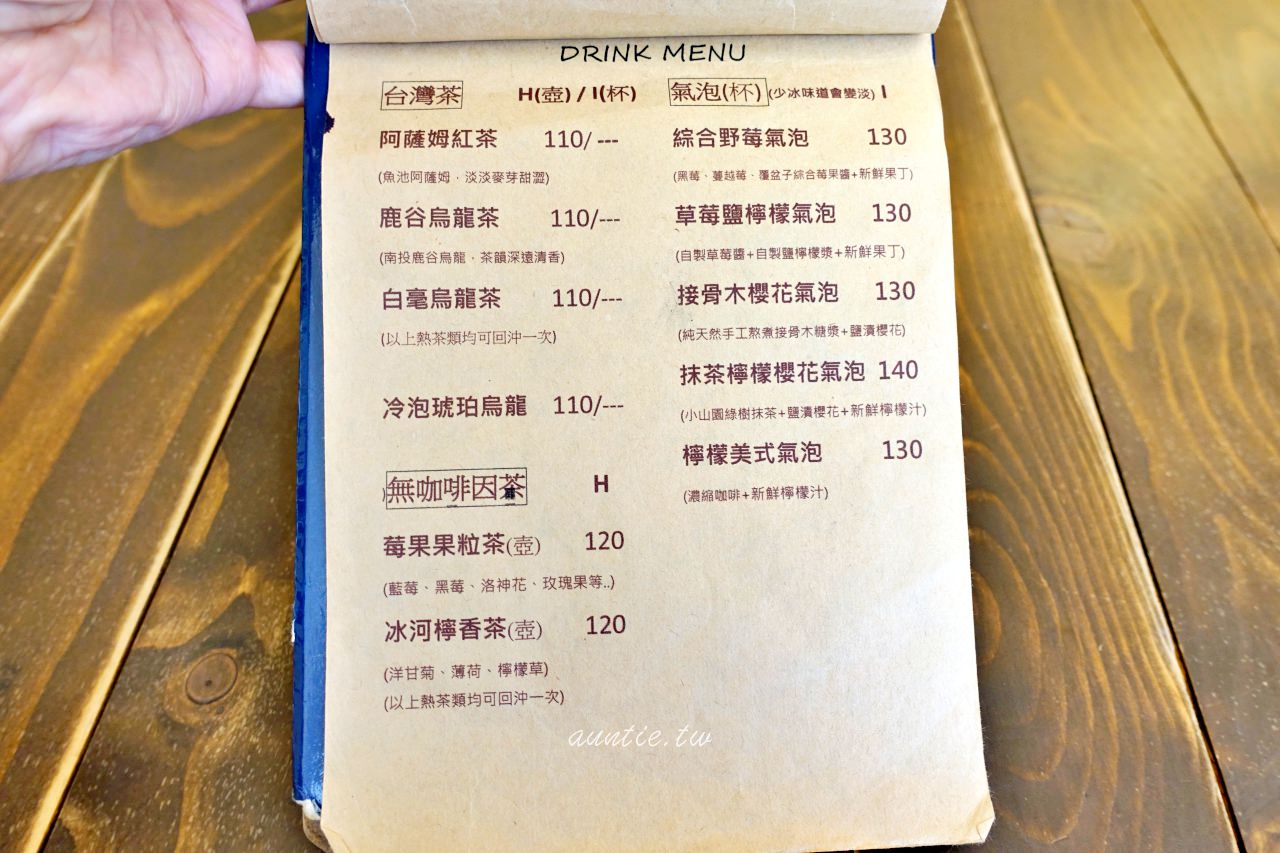 DRINK MENU
台灣茶 H(壺) / I(杯)
阿薩姆紅茶 110/ ---
(魚池阿薩姆，淡淡麥芽甜澀)
鹿谷烏龍茶 110/---
(南投鹿谷烏龍，茶韻深遠清香)
白毫烏龍茶 110/---
(以上熱茶類均可回沖一次)
冷泡琥珀烏龍 110/---
無咖啡因茶 H
莓果果粒茶(壺) 120
(藍莓、黑莓、洛神花、玫瑰果等..)
冰河檸香茶(壺) 120
(洋甘菊、薄荷、檸檬草)
(以上熱茶類均可回沖一次)
氣泡(杯) (少冰味道會變淡) I
綜合野莓氣泡 130
(黑莓、蔓越莓、覆盆子綜合莓果醬+新鮮果丁)
草莓鹽檸檬氣泡 130
(自製草莓醬+自製鹽檸檬漿+新鮮果丁)
接骨木櫻花氣泡 130
(純天然手工熬煮接骨木糖漿+鹽漬櫻花)
抹茶檸檬櫻花氣泡 140
(小山園綠樹抹茶+鹽漬櫻花+新鮮檸檬汁)
檸檬美式氣泡 130
(濃縮咖啡+新鮮檸檬汁)
auntie.tw